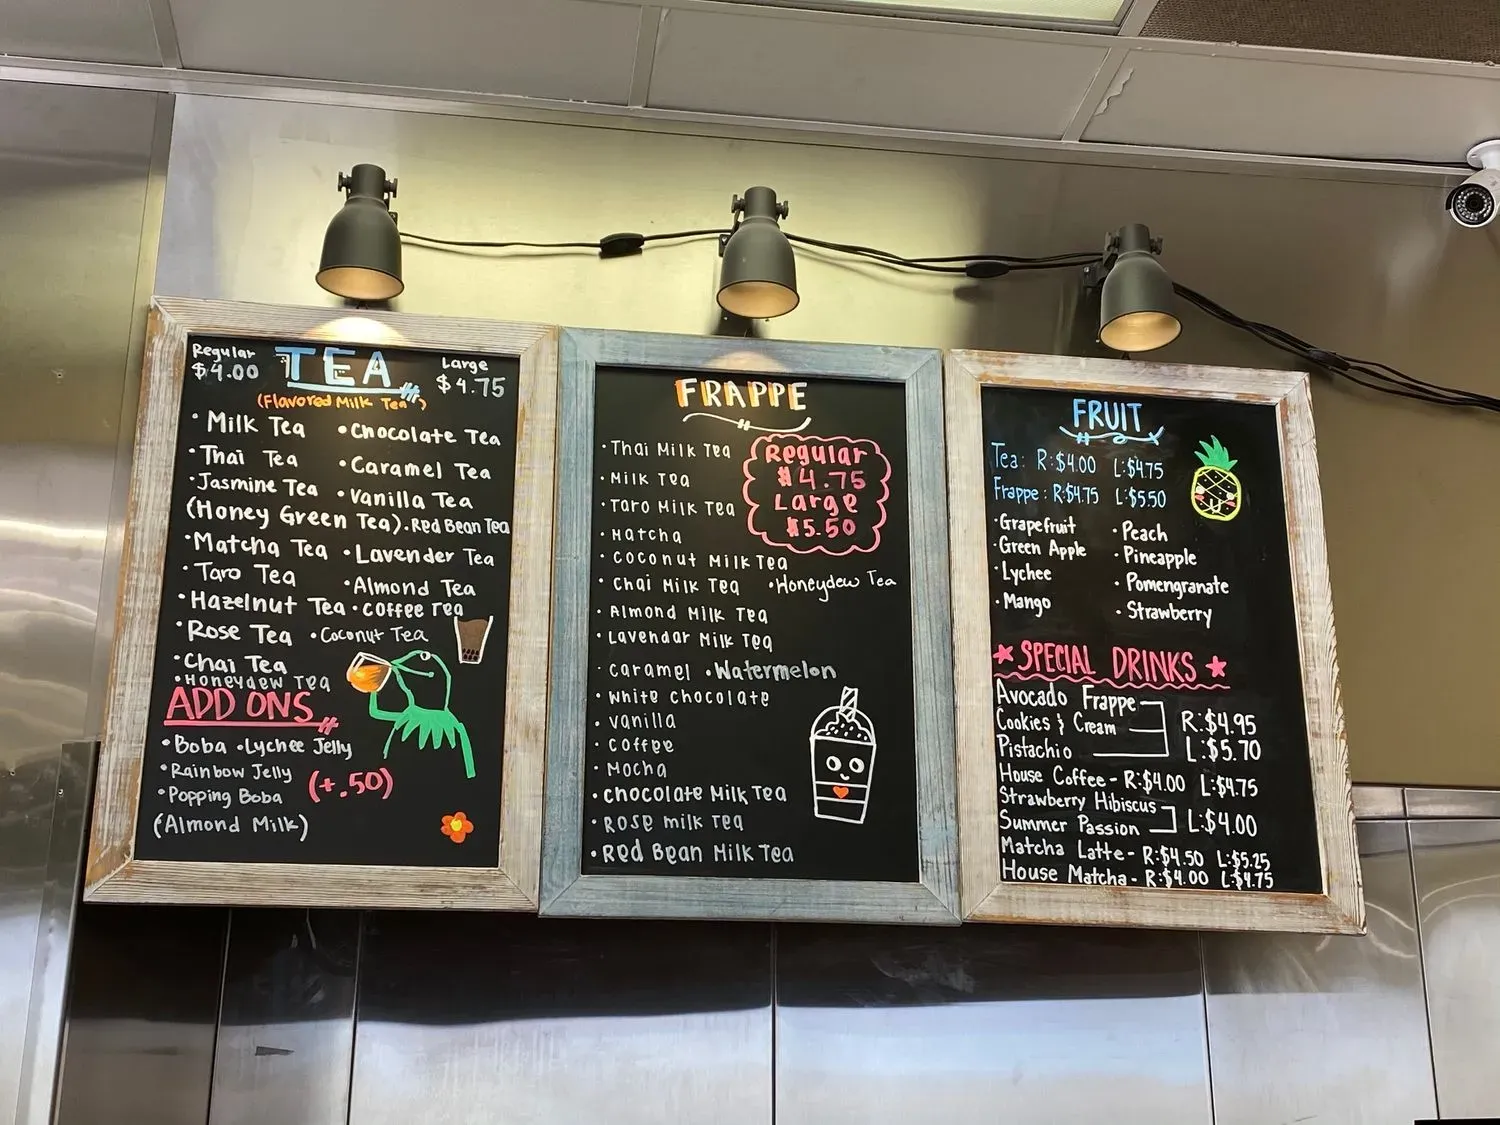 Regular TEA Large
$4.00 $4.75
(Flavored Milk Tea)
• Milk Tea • Chocolate Tea
• Thai Tea • Caramel Tea
• Jasmine Tea • Vanilla Tea
(Honey Green Tea) • Red Bean Tea
• Matcha Tea • Lavender Tea
• Taro Tea • Almond Tea
• Hazelnut Tea • Coffee Tea
• Rose Tea • Coconut Tea
• Chai Tea
• Honeydew Tea
ADD ONS
• Boba • Lychee Jelly
• Rainbow Jelly (+.50)
• Popping Boba
(Almond Milk)
FRAPPE
Regular
$4.75
Large
$5.50
• Thai Milk Tea
• Milk Tea
• Taro Milk Tea
• Matcha
• Coconut Milk Tea
• Chai Milk Tea • Honeydew Tea
• Almond Milk Tea
• Lavendar Milk Tea
• Caramel • Watermelon
• White Chocolate
• Vanilla
• Coffee
• Mocha
• Chocolate Milk Tea
• Rose Milk Tea
• Red Bean Milk Tea
FRUIT
Tea: R:$4.00 L:$4.75
Frappe: R:$4.75 L:$5.50
• Grapefruit • Peach
• Green Apple • Pineapple
• Lychee • Pomengranate
• Mango • Strawberry
★ SPECIAL DRINKS ★
Avocado Frappe
Cookies & Cream R:$4.95
Pistachio L:$5.70
House Coffee - R:$4.00 L:$4.75
Strawberry Hibiscus
Summer Passion L:$4.00
Matcha Latte - R:$4.50 L:$5.25
House Matcha - R:$4.00 L:$4.75